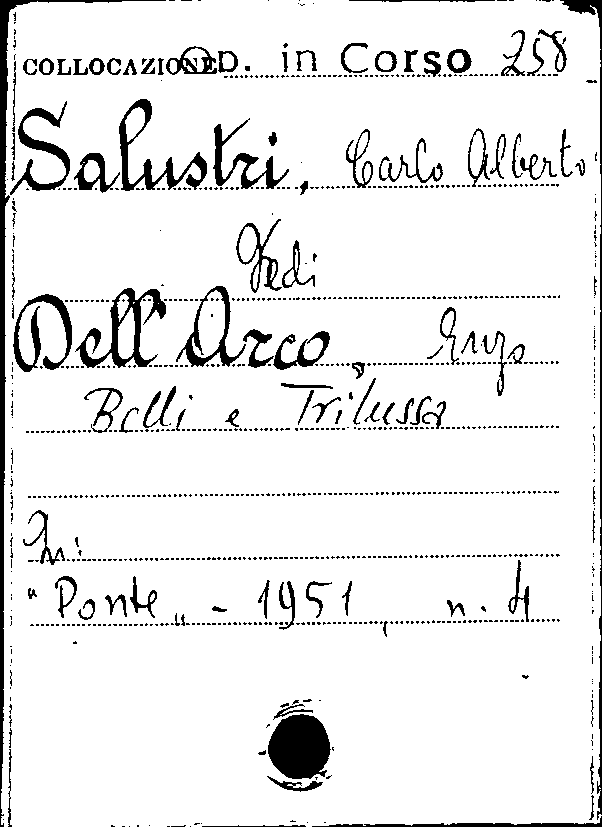 COLLOCAZIONE Op. in Corso 258
Salustri, Carlo Alberto
Vedi
Dell'Arco, Enzo
Belli e Trilussa
In:
"Ponte„ - 1951, n. 4